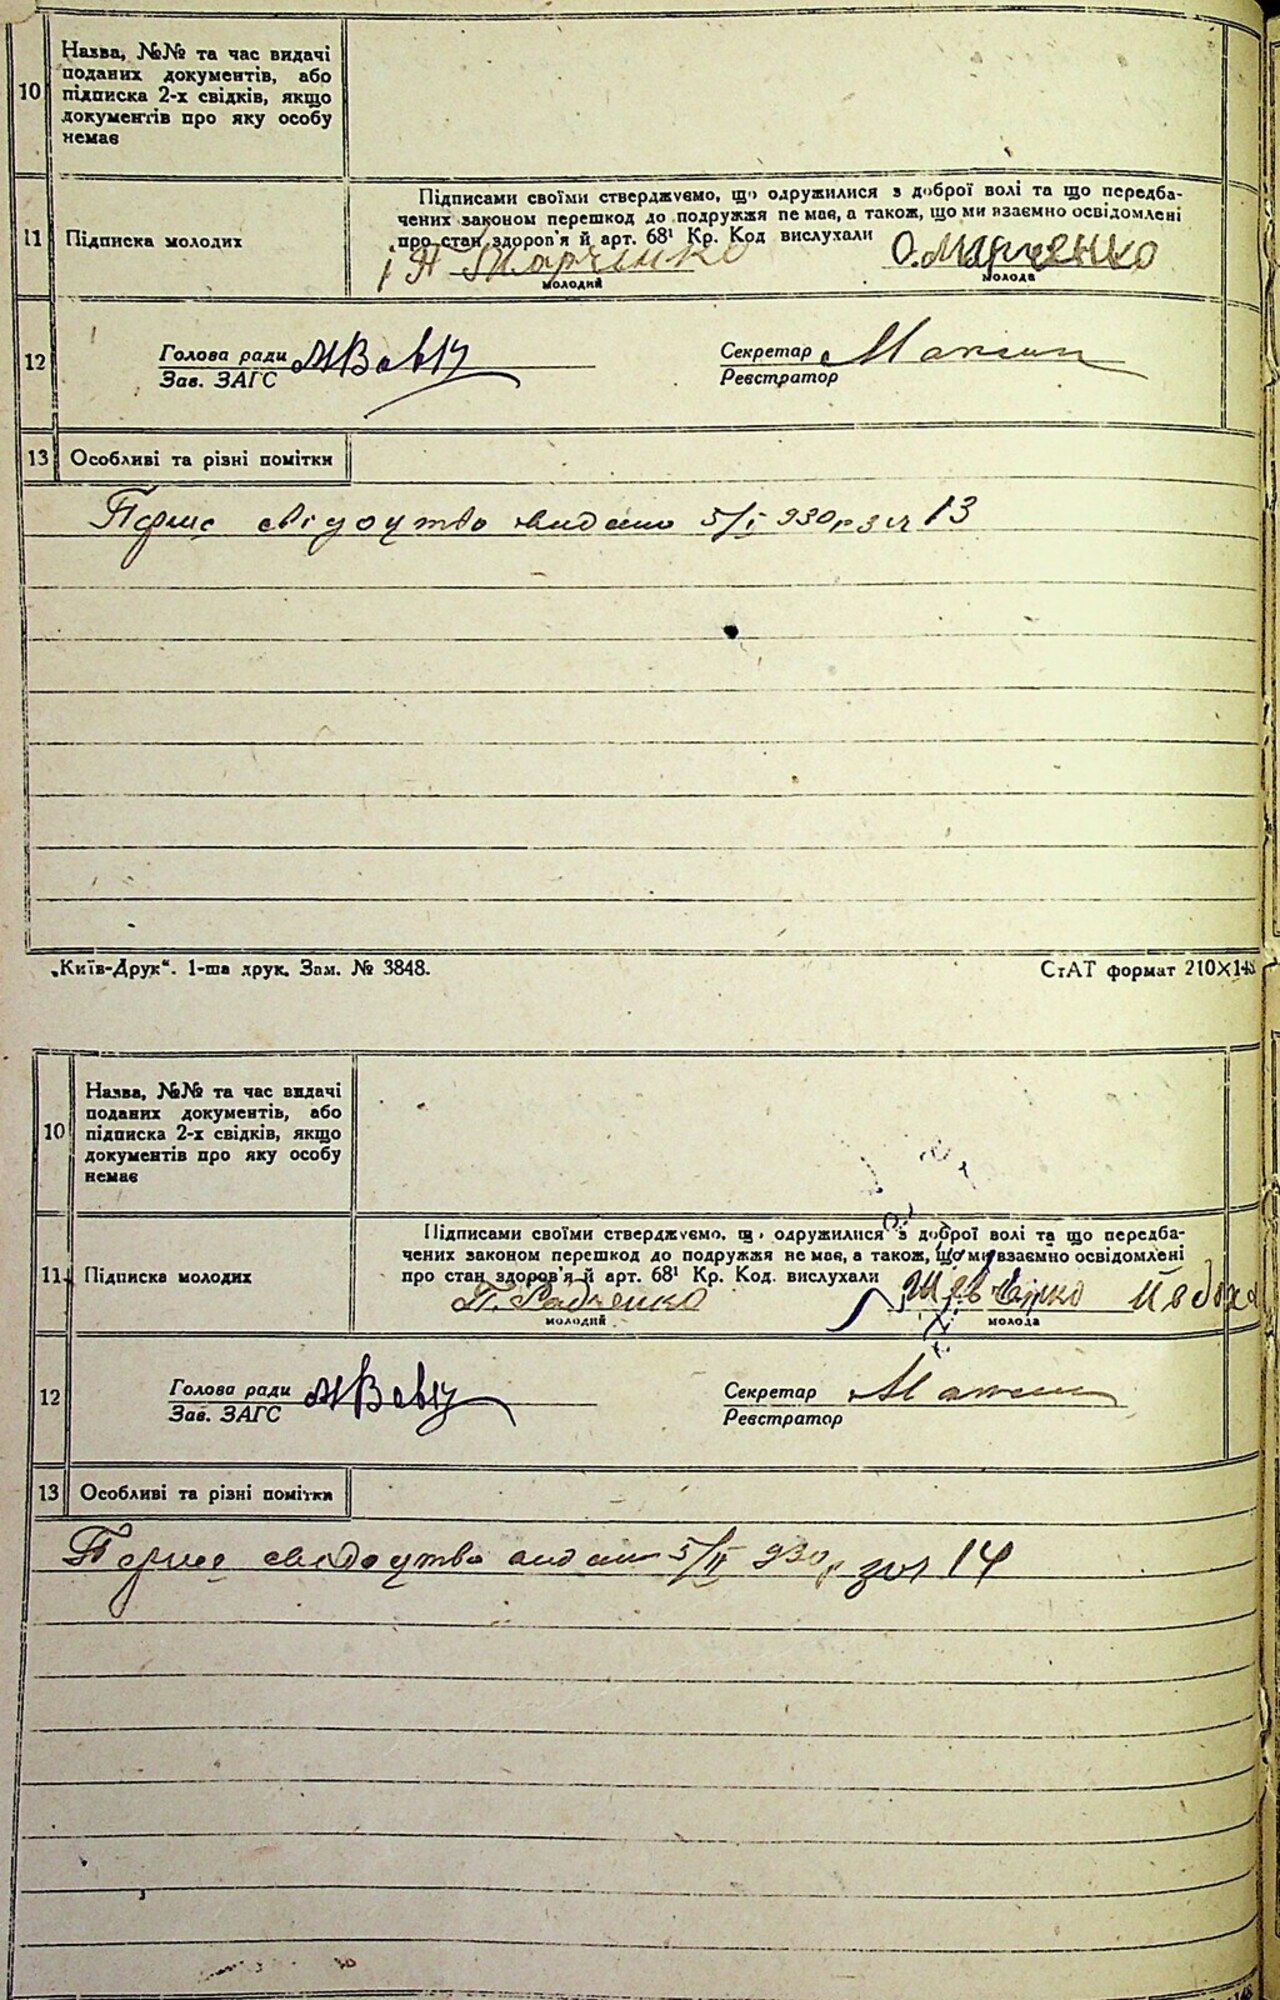 10
Назва, №№ та час видачі
поданих документів, або
підписка 2-х свідків, якщо
документів про яку особу
немає
11
Підписка молодих
Підписами своїми стверджуємо, що одружилися з доброї волі та що передба-
чених законом перешкод до подружжя не має, а також, що ми взаємно освідомлені
про стан здоров'я й арт. 68¹ Кр. Код вислухали
П Марченко
О. Марченко
молодий
молода
12
Голова ради
Зав. ЗАГС
Секретар
Реєстратор
13
Особливі та різні помітки
Перше свідоцтво видано 5/І 930 р за 13
„Київ-Друк“. 1-ша друк. Зам. № 3848.
СтАТ формат 210×148
10
Назва, №№ та час видачі
поданих документів, або
підписка 2-х свідків, якщо
документів про яку особу
немає
11
Підписка молодих
Підписами своїми стверджуємо, що одружилися з доброї волі та що передба-
чених законом перешкод до подружжя не має, а також, що ми взаємно освідомлені
про стан здоров'я й арт. 68¹ Кр. Код. вислухали
П. Радченко
Шевченко
молодий
молода
12
Голова ради
Зав. ЗАГС
Секретар
Реєстратор
13
Особливі та різні помітки
Перше свидоцтво видано 5/ІІ 930 р за 14